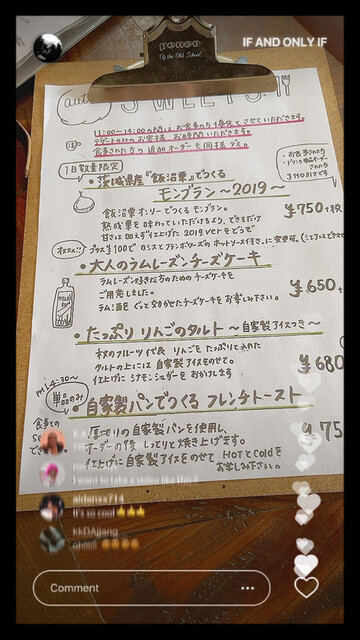 IF AND ONLY IF
PENCO
Old School
SWEETS
11:00〜14:00の間はお食事の方を優先とさせていただきます。
デザートのみのお客様 お時間いただきます。
食事された方の追加オーダーも同様です。
1日数量限定
・茨城県産『飯沼栗』でつくる
モンブラン 〜2019〜
飯沼栗オンリーでつくるモンブラン。
熟成栗を味わっていただけるよう、できるだけ
甘さは加えず仕上げた 2019 verをどうぞ
¥750+税
プラス¥100で カシスとフランボワーズのホットソース付き
・大人のラムレーズンチーズケーキ
ラムレーズン好きな方のためのチーズケーキを
ご用意しました。
ラム酒をぐっと効かせたチーズケーキをお楽しみ下さい。
¥650+
・たっぷり りんごのタルト 〜自家製アイスつき〜
秋のフルーツ代表 りんごをたっぷりと入れた
タルトの上には自家製アイスをのせて。
仕上げにシナモンシュガーをおかけします
¥680
PM 14:30〜
単品のみ
・自家製パンでつくる フレンチトースト
厚切りの自家製パンを使用し、
オーダーの後 しっとりと焼き上げます。
仕上げに自家製アイスをのせて HOTとColdを
お楽しみ下さい。
¥75
食事との
aidenxx714
It's so cool
kkDAjjang
Comment